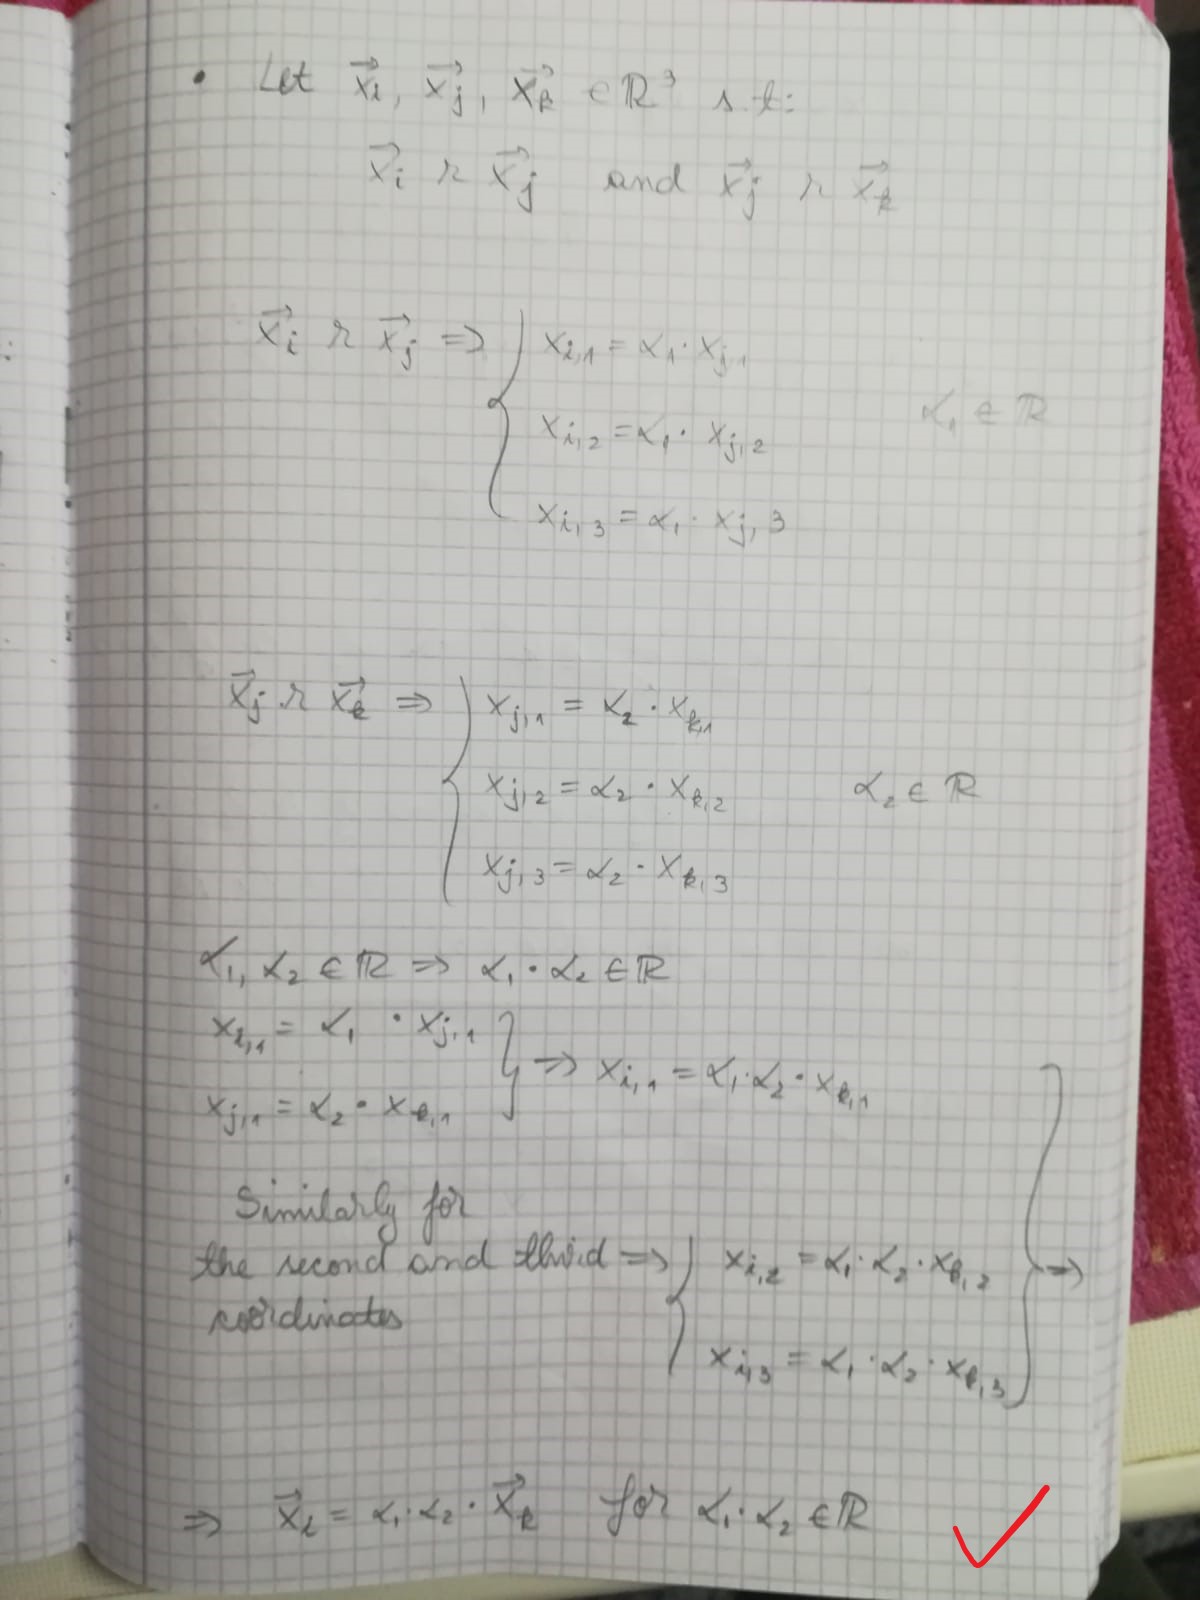 • Let x⃗i, x⃗j, x⃗k ∈ ℝ³ s.t:
x⃗i r x⃗j and x⃗j r x⃗k
x⃗i r x⃗j ⇒ { xi,1 = α1 · xj,1
xi,2 = α1 · xj,2 α1 ∈ ℝ
xi,3 = α1 · xj,3
x⃗j r x⃗k ⇒ { xj,1 = α2 · xk,1
xj,2 = α2 · xk,2 α2 ∈ ℝ
xj,3 = α2 · xk,3
α1, α2 ∈ ℝ ⇒ α1 · α2 ∈ ℝ
xi,1 = α1 · xj,1 } ⇒ xi,1 = α1 · α2 · xk,1
xj,1 = α2 · xk,1
Similarly for
the second and third ⇒ { xi,2 = α1 · α2 · xk,2 } ⇒
coordinates
xi,3 = α1 · α2 · xk,3
⇒ x⃗i = α1 · α2 · x⃗k for α1 · α2 ∈ ℝ